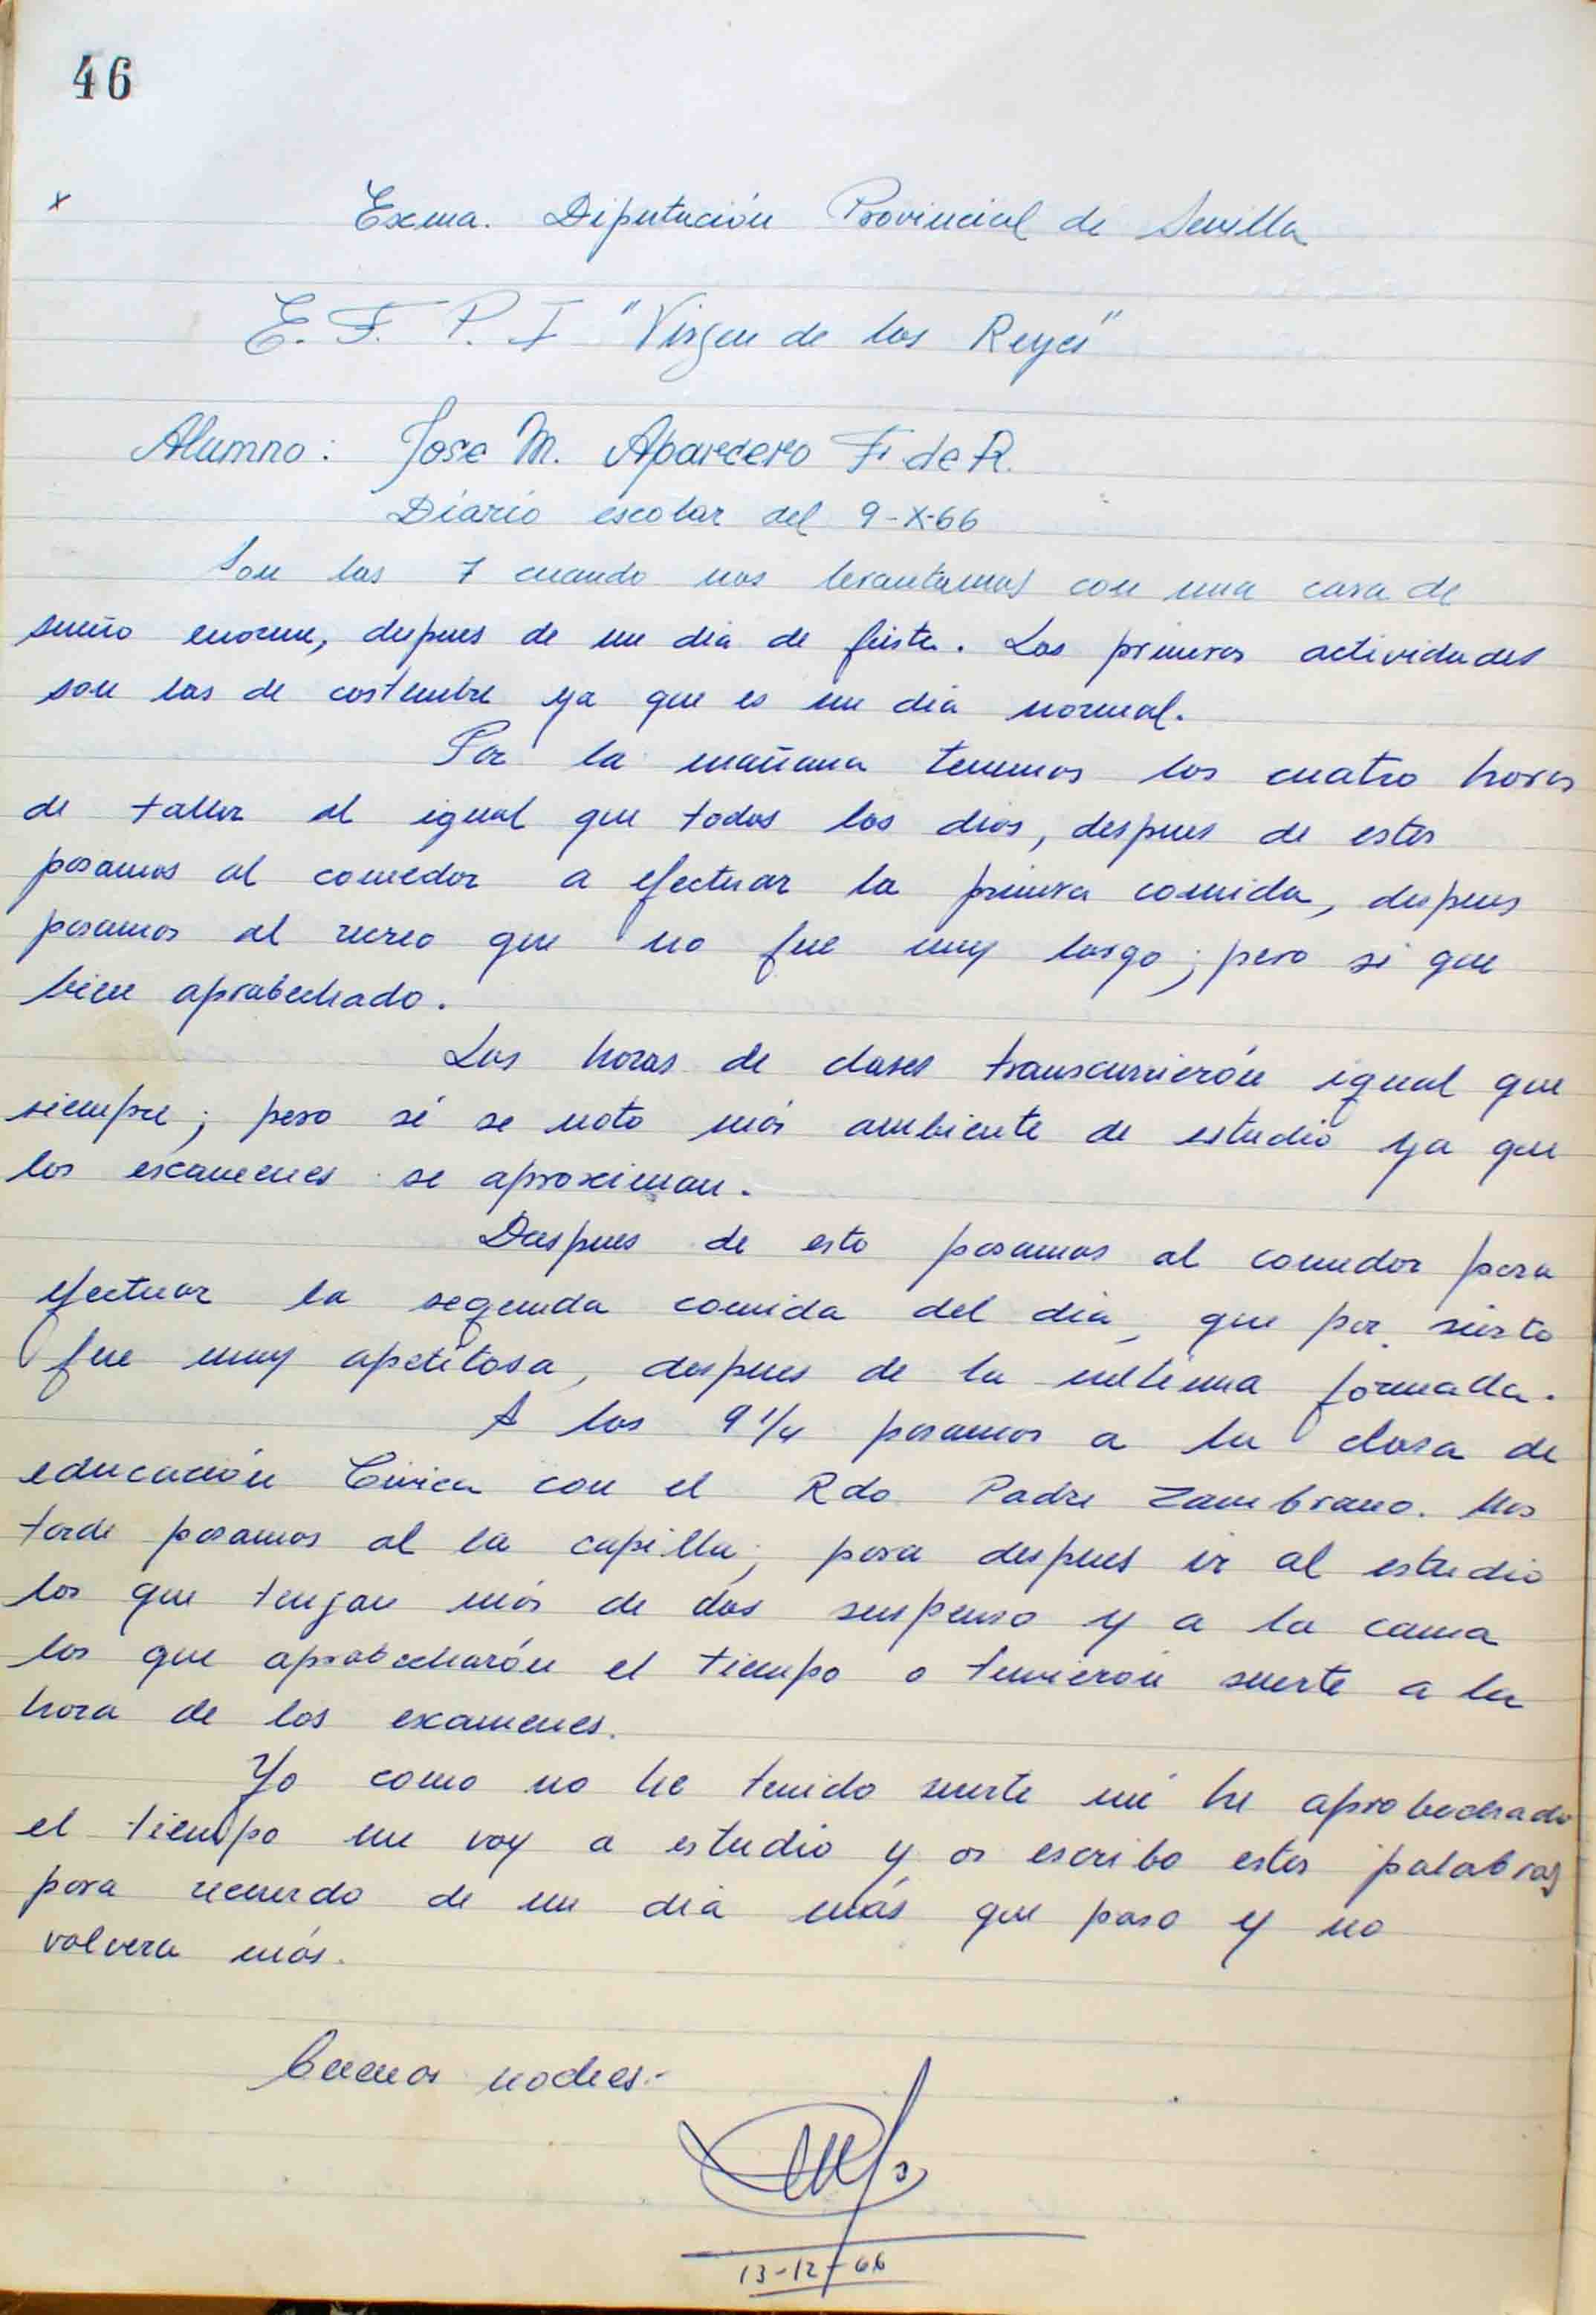 46
x
Exma. Diputación Provincial de Sevilla
E. F. P. I "Virgen de los Reyes"
Alumno: Jose M. Aparcero F. de R.
Diario escolar del 9-X-66
Son las 7 cuando nos levantamos con una cara de
sueño enorme, depues de un dia de fiesta. Las primeras actividades
son las de costumbre ya que es un dia normal.
Por la mañana tenemos las cuatro horas
de taller al igual que todos los dias, despues de estas
pasamos al comedor a efectuar la primera comida, despues
pasamos al recreo que no fue muy largo; pero si que
bien aprobechado.
Las horas de clases transcurrierón igual que
siempre; pero sí se noto más ambiente de estudio ya que
los excamenes se aproximan.
Daspues de esto pasamos al comedor para
efectuar la segunda comida del dia, que por sierto
fue muy apetitosa, despues de la ultima formada.
A las 9 1/4 pasamos a la clasa de
educación Civica con el Rdo Padre Zambrano. Mas
tarde pasamos al la capilla, para despues ir al estudio
los que tengan más de dos suspenso y a la cama
los que aprobecharón el tiempo o tuvierón suerte a la
hora de los examenes.
Yo como no he tenido suerte ni he aprobechado
el tiempo me voy a estudio y os escribo estas palabras
para recuerdo de un dia más que paso y no
volvera más.
Buenas noches.-
13-12-66